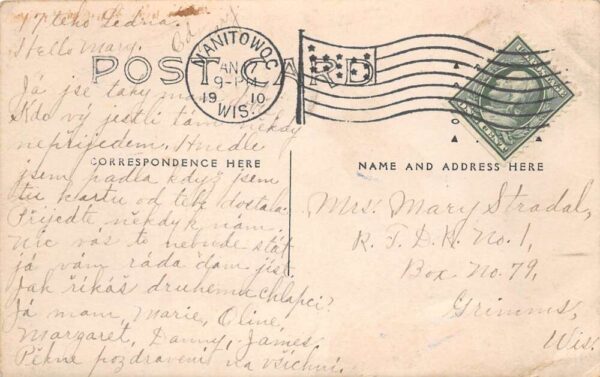 Hello Mary.
POST CARD
MANITOWOC
JAN 7
9-PM
1910
WIS.
CORRESPONDENCE HERE
NAME AND ADDRESS HERE
Já jse taky
Kdo vý jestli tam někdy
nepřijedem. Hnedle
jsem padla když jsem
tu kartu od tebe dostala.
Přijedte někdy k nám.
Nic vás to nebude stát
já vám ráda dam jíst
Jak říkáš druhemu chlapci?
Já mam, Marie, Oline,
Margaret, Danny, James.
Pěkne pozdravení na všichni.
Mrs. Mary Stradal,
R. F. D. R. No. 1,
Box No. 79,
Grimms,
Wis.